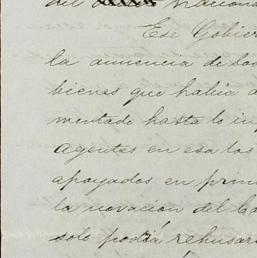 del Nacional
Ese Gobier
la anuencia de los
bienes que habia a
mentado hasta lo in
agentes en esa los
apoyados en prin
la novacion del Co
solo podia rehusar